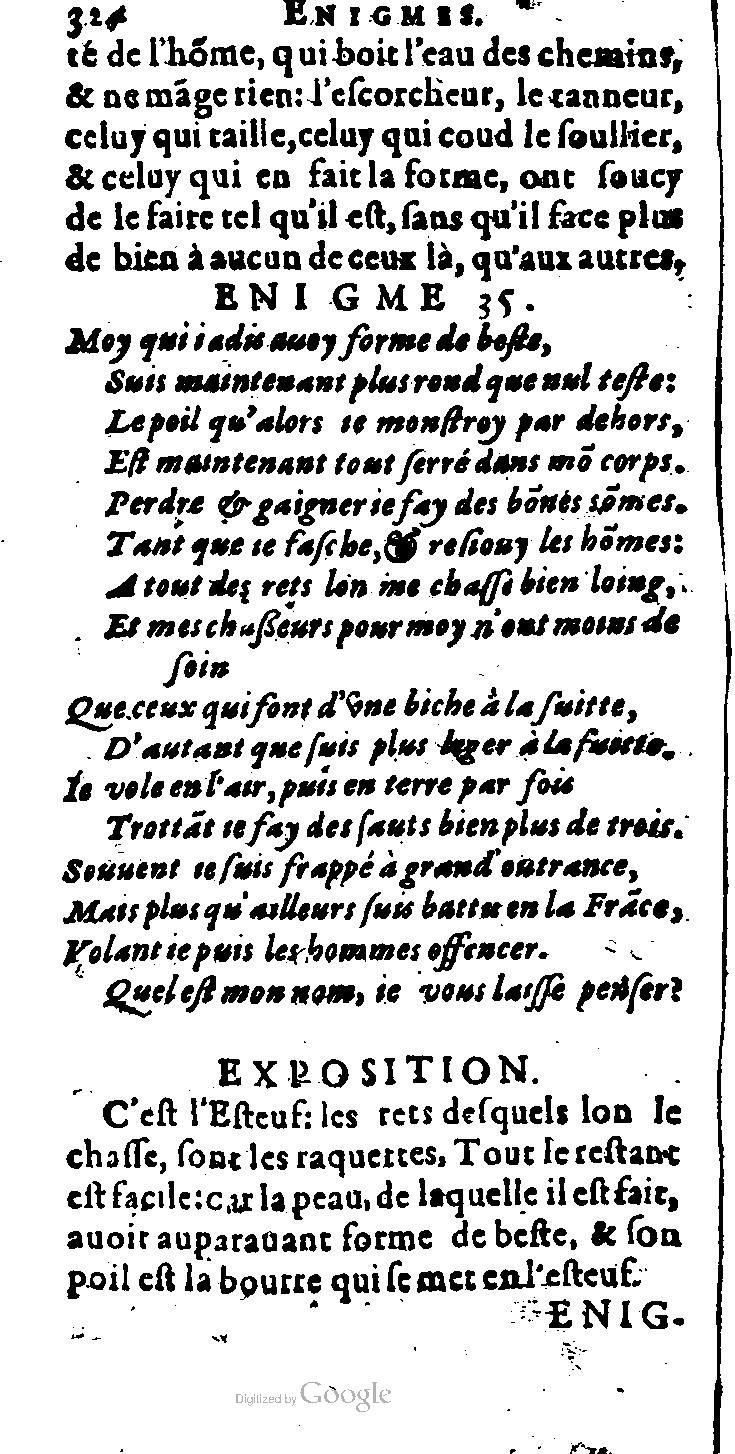 324 ENIGMES.
té de l'hõme, qui boit l'eau des chemins,
& ne mãge rien: l'eſcorcheur, le tanneur,
celuy qui taille, celuy qui coud le ſoullier,
& celuy qui en fait la forme, ont ſoucy
de le faire tel qu'il eſt, ſans qu'il face plus
de bien à aucun de ceux là, qu'aux autres,
ENIGME 35.
Moy qui iadis auoy forme de beſte,
Suis maintenant plus rond que nul teſte:
Le poil qu'alors ie monſtroy par dehors,
Eſt maintenant tout ſerré dans mõ corps.
Perdre & gaigner ie fay des bõnes sõmes.
Tant que ie faſche, & reſiouy les hõmes:
A tout des rets lon me chaſſe bien loing,
Et mes chaſſeurs pour moy n'ont moins de
ſoin
Que ceux qui font d'vne biche à la ſuitte,
D'autant que ſuis plus leger à la fuitte.
Ie vole en l'air, puis en terre par fois
Trottãt ie fay des ſauts bien plus de trois.
Souuent ie ſuis frappé à grand' outrance,
Mais plus qu'ailleurs ſuis battu en la Frãce,
Volant ie puis les hommes offencer.
Quel eſt mon nom, ie vous laiſſe penſer?
EXPOSITION.
C'eſt l'Eſteuf: les rets deſquels lon le
chaſſe, ſont les raquettes, Tout le reſtant
eſt facile: car la peau, de laquelle il eſt fait,
auoit auparauant forme de beſte, & ſon
poil eſt la bourre qui ſe met en l'eſteuf.
ENIG-
Digitized by Google